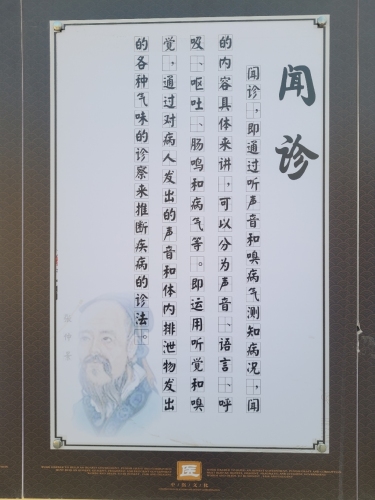 闻诊
闻诊，即通过听声音和嗅病气测知病况，闻
的内容具体来讲，可以分为声音、语言、呼
吸、呕吐、肠鸣和病气等。即运用听觉和嗅
觉，通过对病人发出的声音和体内排泄物发出
的各种气味的诊察来推断疾病的诊法。
张仲景